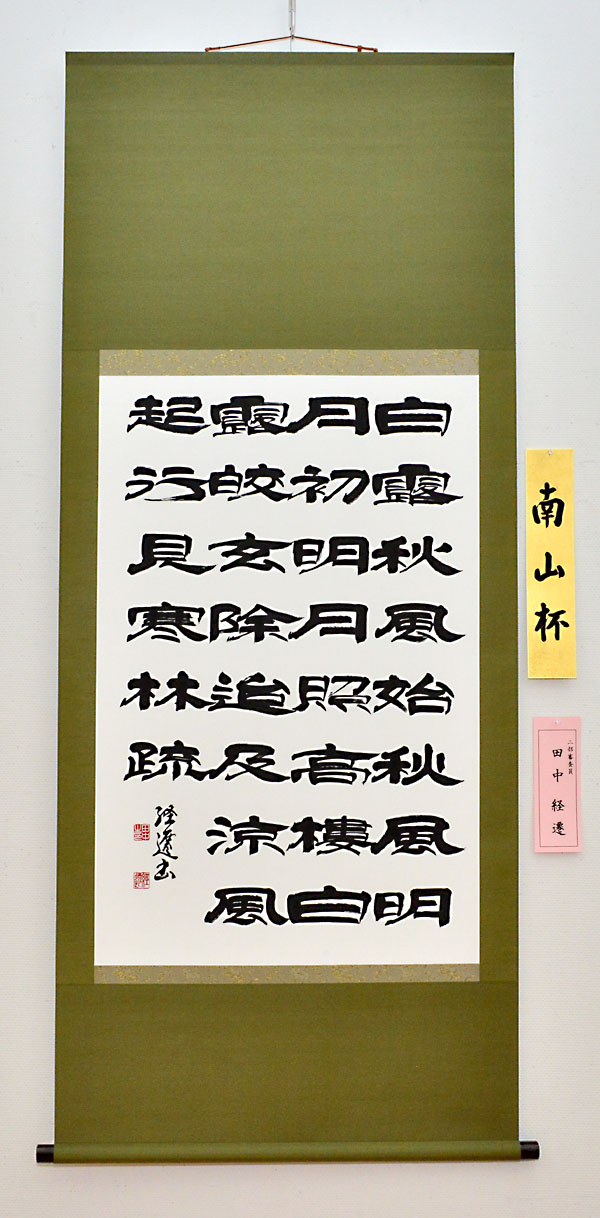 白露秋風始秋風明
月初明月照高樓白
露皎玄除迨及涼風
起行見寒林疏
経遷書
南山杯
二部審査員
田中 経遷